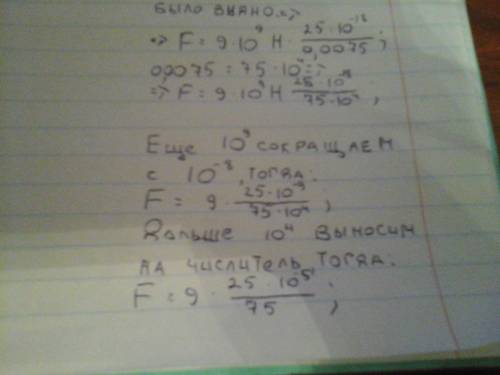 было видно =>
=> F = 9·10⁹ Н · 25·10⁻¹⁸ / 0,0075 ;
0,0075 = 75·10⁻⁴ =>
=> F = 9·10⁹ Н 25·10⁻¹⁸ / 75·10⁻⁴ ,
Еще 10⁹ сокращаем
с 10⁻¹⁸, тогда:
F = 9 · 25·10⁻⁹ / 75·10⁻⁴ ;
Дальше 10⁴ выносим
на числитель тогда:
F = 9 · 25·10⁵ / 75 ;